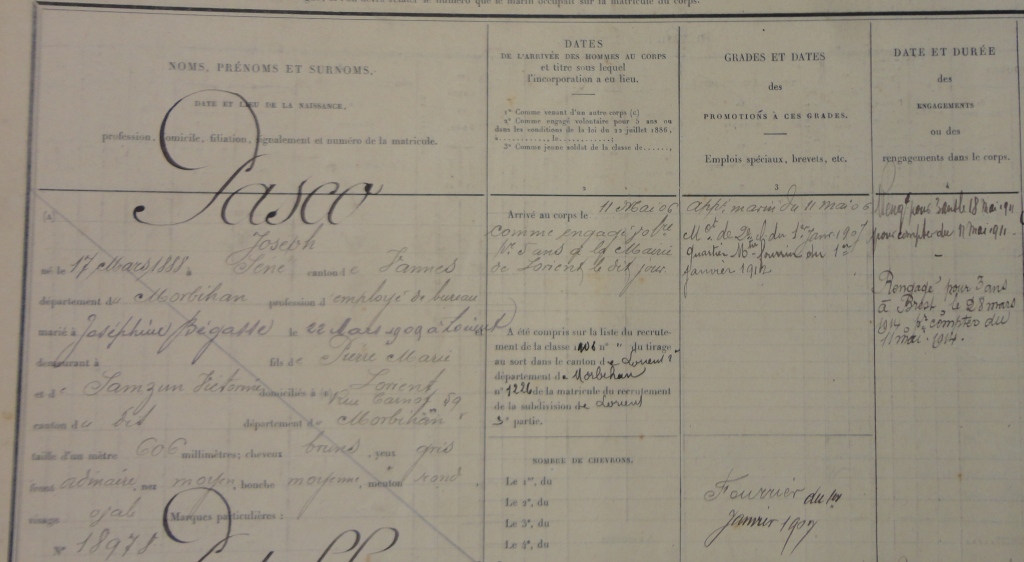 que le numéro que le marin occupait sur la matricule du corps.
NOMS, PRÉNOMS ET SURNOMS.
DATE ET LIEU DE LA NAISSANCE,
profession, domicile, filiation, signalement et numéro de la matricule.
Pasco
Joseph
né le 17 Mars 1888 à Séné canton de Vannes
département du Morbihan profession d'employé de bureau
marié à Joséphine Bégasse le 22 Mars 1909 à Lorient
demeurant à fils de Pierre Marie
et de Samzun Victorine domiciliés à Lorient
Rue Carnot 59
canton du dit département du Morbihan
taille d'un mètre 606 millimètres; cheveux bruns, yeux gris
front ordinaire, nez moyen, bouche moyenne, menton rond
visage oval Marques particulières :
N° 18978
DATES
DE L'ARRIVÉE DES HOMMES AU CORPS
et titre sous lequel
l'incorporation a eu lieu.
1° Comme venant d'un autre corps (c)
2° Comme engagé volontaire pour 5 ans ou
dans les conditions de la loi du 22 juillet 1886,
à .........., le ..........;
3° Comme jeune soldat de la classe de ......,
2
Arrivé au corps le 11 Mai 06
comme engagé volre
pr 5 ans à la Mairie
de Lorient le dit jour.
A été compris sur la liste du recrute-
ment de la classe 1906 n° " du tirage
au sort dans le canton de Lorient
département du Morbihan
n° 1226 de la matricule du recrutement
de la subdivision de Lorient
3e partie.
NOMBRE DE CHEVRONS.
Le 1er, du
Le 2e, du
Le 3e, du
Le 4e, du
GRADES ET DATES
des
PROMOTIONS À CES GRADES.
Emplois spéciaux, brevets, etc.
3
App. marin du 11 mai 06
Mot de 2e cl du 1er Janv 1907
quartier Mtre fourrier du 1er
janvier 1912
Fourrier du 1er
janvier 1907
DATE ET DURÉE
des
ENGAGEMENTS
ou des
rengagements dans le corps.
4
Reng. pour 3 ans le 18 mai 1911
pour compter du 11 mai 1911.
Rengagé pour 3 ans
à Brest le 28 mars
1914 pr compter du
11 mai 1914.